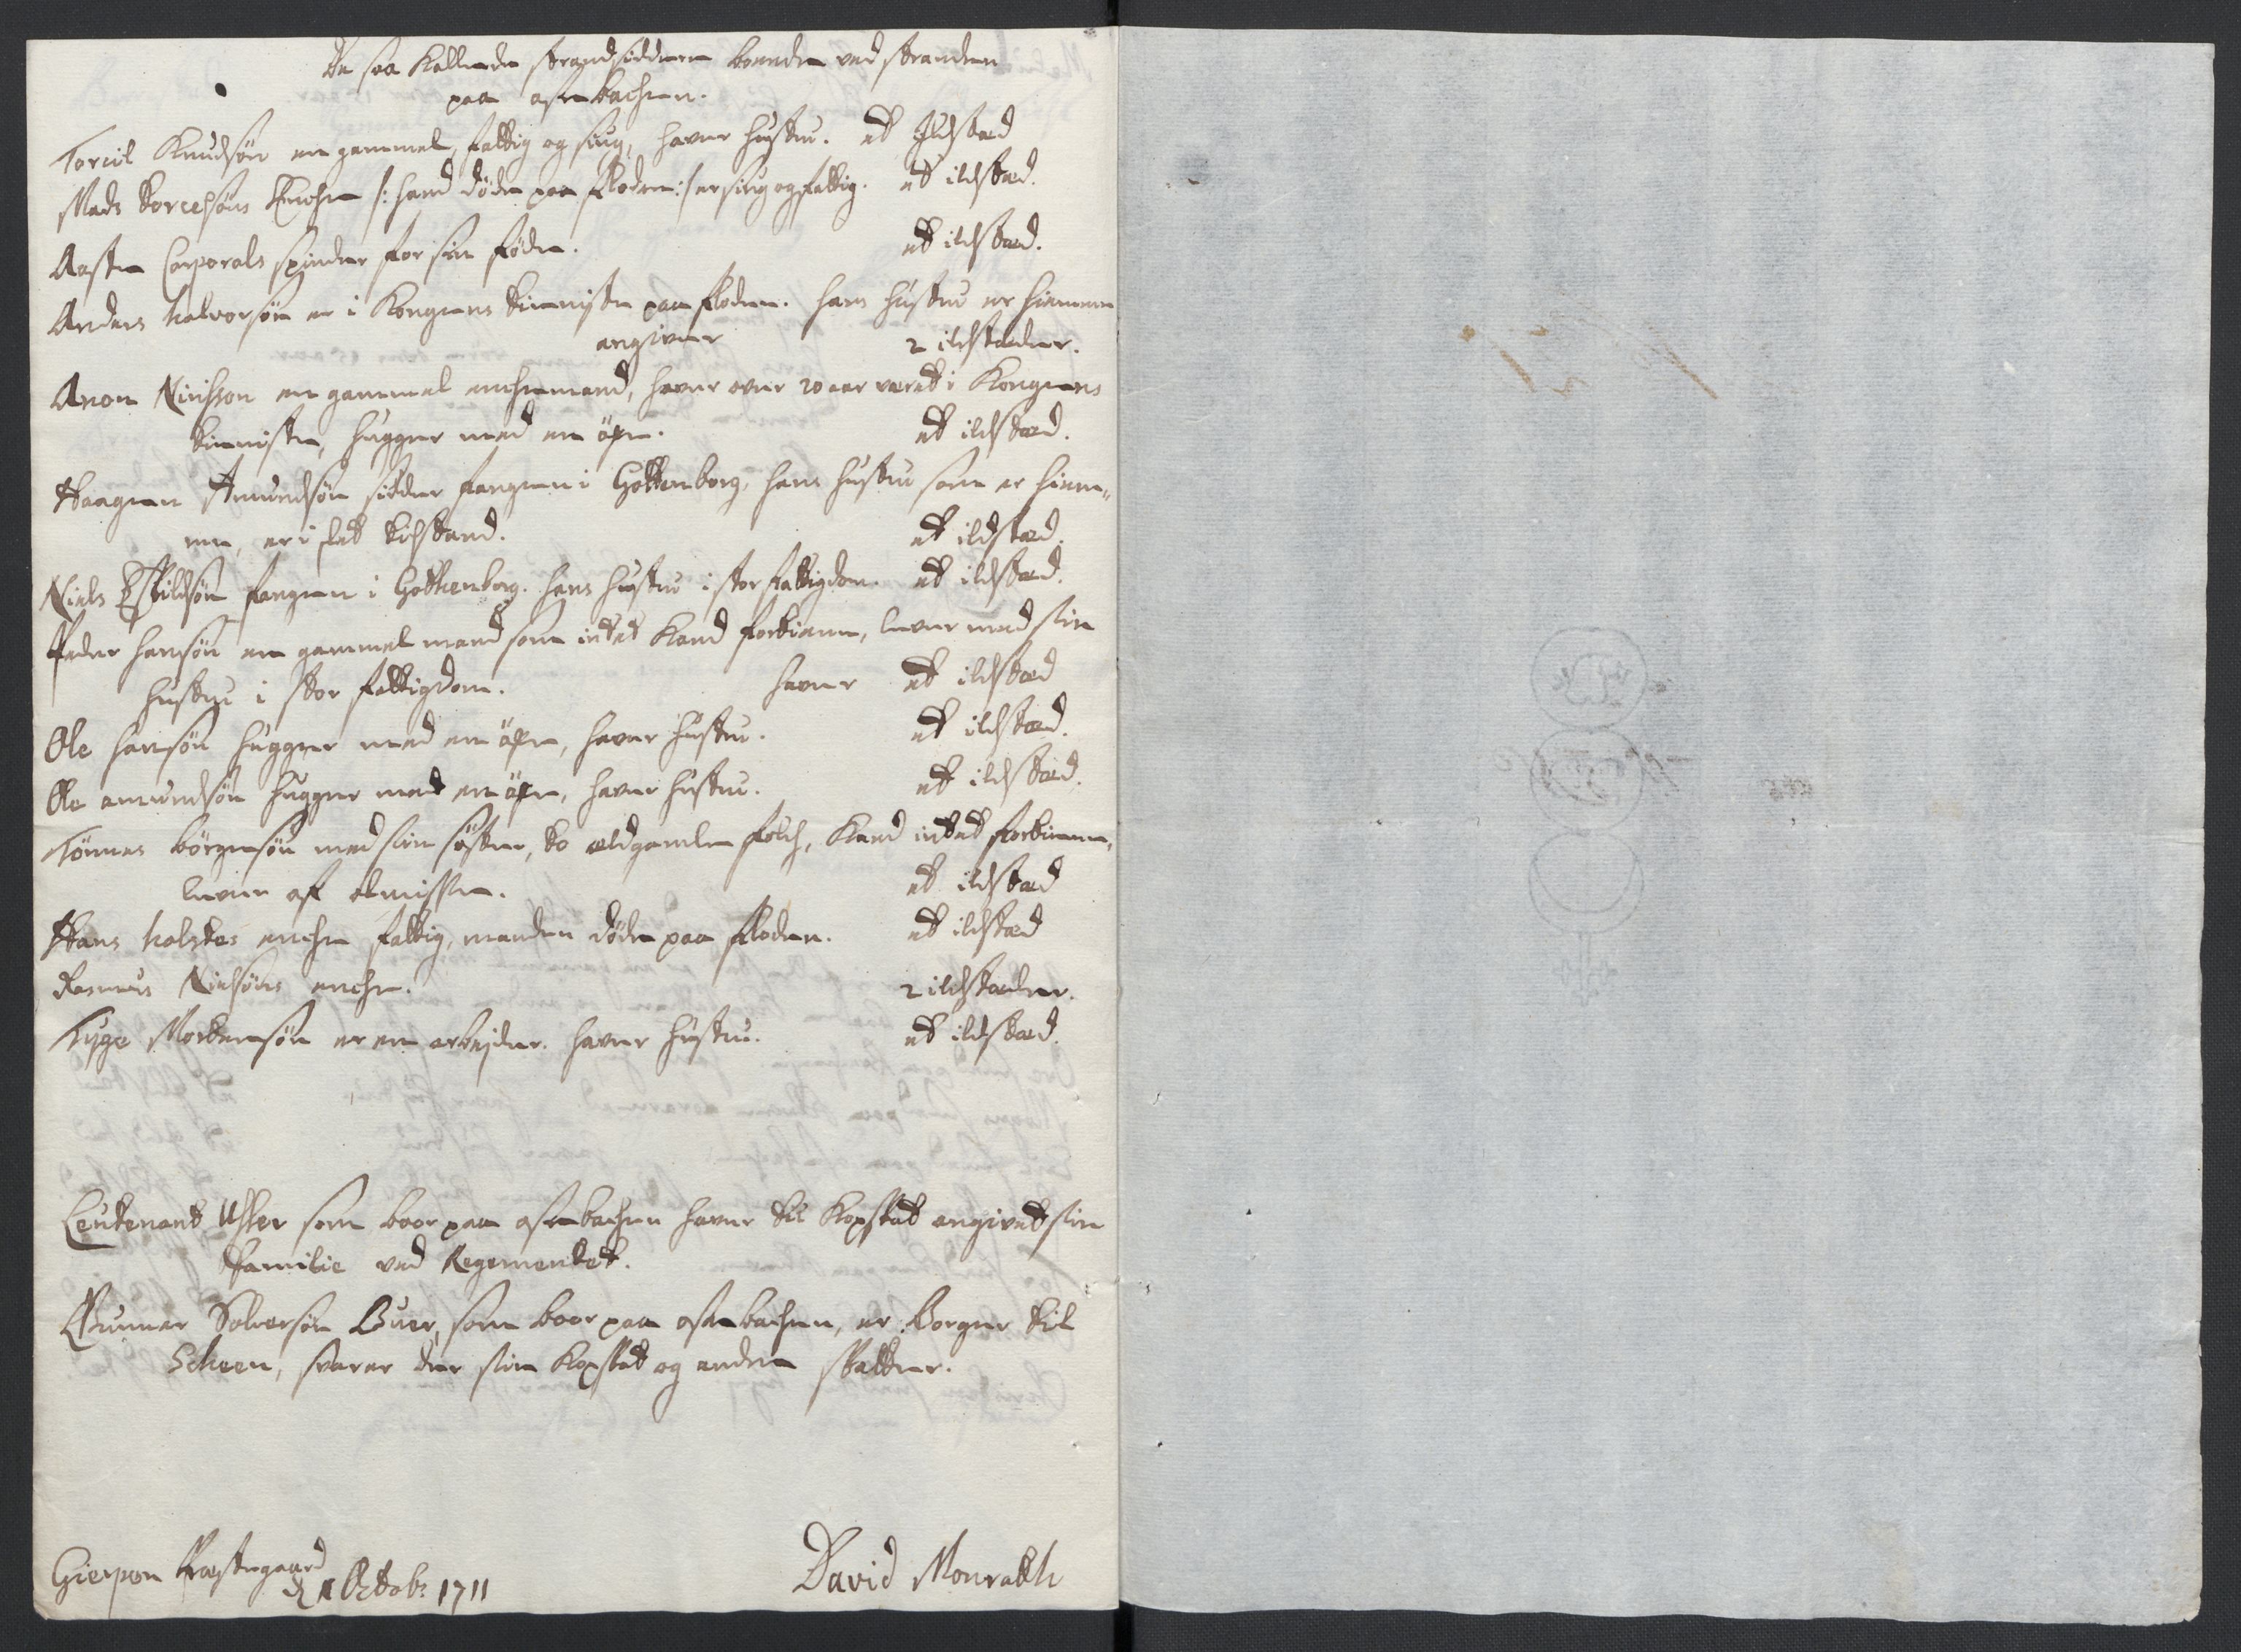 De saa kallede strandsiddere boende ved stranden
paa osebachen.
Torcil Knudsøn en gammel, fattig og siug, haver hustru. et Ildsted
Mads torcelsøns Enche /: hand døde paa floden :/ er siug og fattig. et ildsted.
Aaste Corporals spinder for sin føde. et ildsted.
Anders halvorsøn er i Kongens tienniste paa floden. hans hustru er hiemme
angiver 2 ildsteder.
Aron Nielsson en gammel enchemand, haver over 20 aar været i Kongens
tienniste, hugger med en öxe. et ildsted.
Haagen Amundsøn sidder fangen i Gottenborg, hans hustru som er hiem„
me, er i slet tilstand. et ildsted.
Niels Eskildsøn fangen i Gottenborg. hans hustru i stor fattigdom. et ildsted.
Peder hansøn en gammel mand som intet kand fortiene, lever med sin
hustru i stor fattigdom. haver et ildsted
Ole hansøn hugger med en öxe, haver hustru. et ildsted.
Ole amundsøn hugger med en öxe, haver hustru. et ildsted.
Tönnes börgesøn med sin söster, to ældgamle folch, kand intet fortienne,
lever af almisse. et ildsted
Hans holstes enche fattig, manden døde paa floden. et ildsted
Rasmus Nielsøns enche. 2 ildsteder.
Tyge Mortensøn er en arbejder. haver hustru. et ildsted.
Leutenant Usler som boor paa osebachen haver til kopskat angivet sin
Familie ved Regementet.
Gunner Solversøn Buer, som boor paa osebachen, er Borger til
Scheen, svarer der sin kopskat og andre skatter.
Gierpen Præstegaard
d 1 Octobr 1711
David Monrath